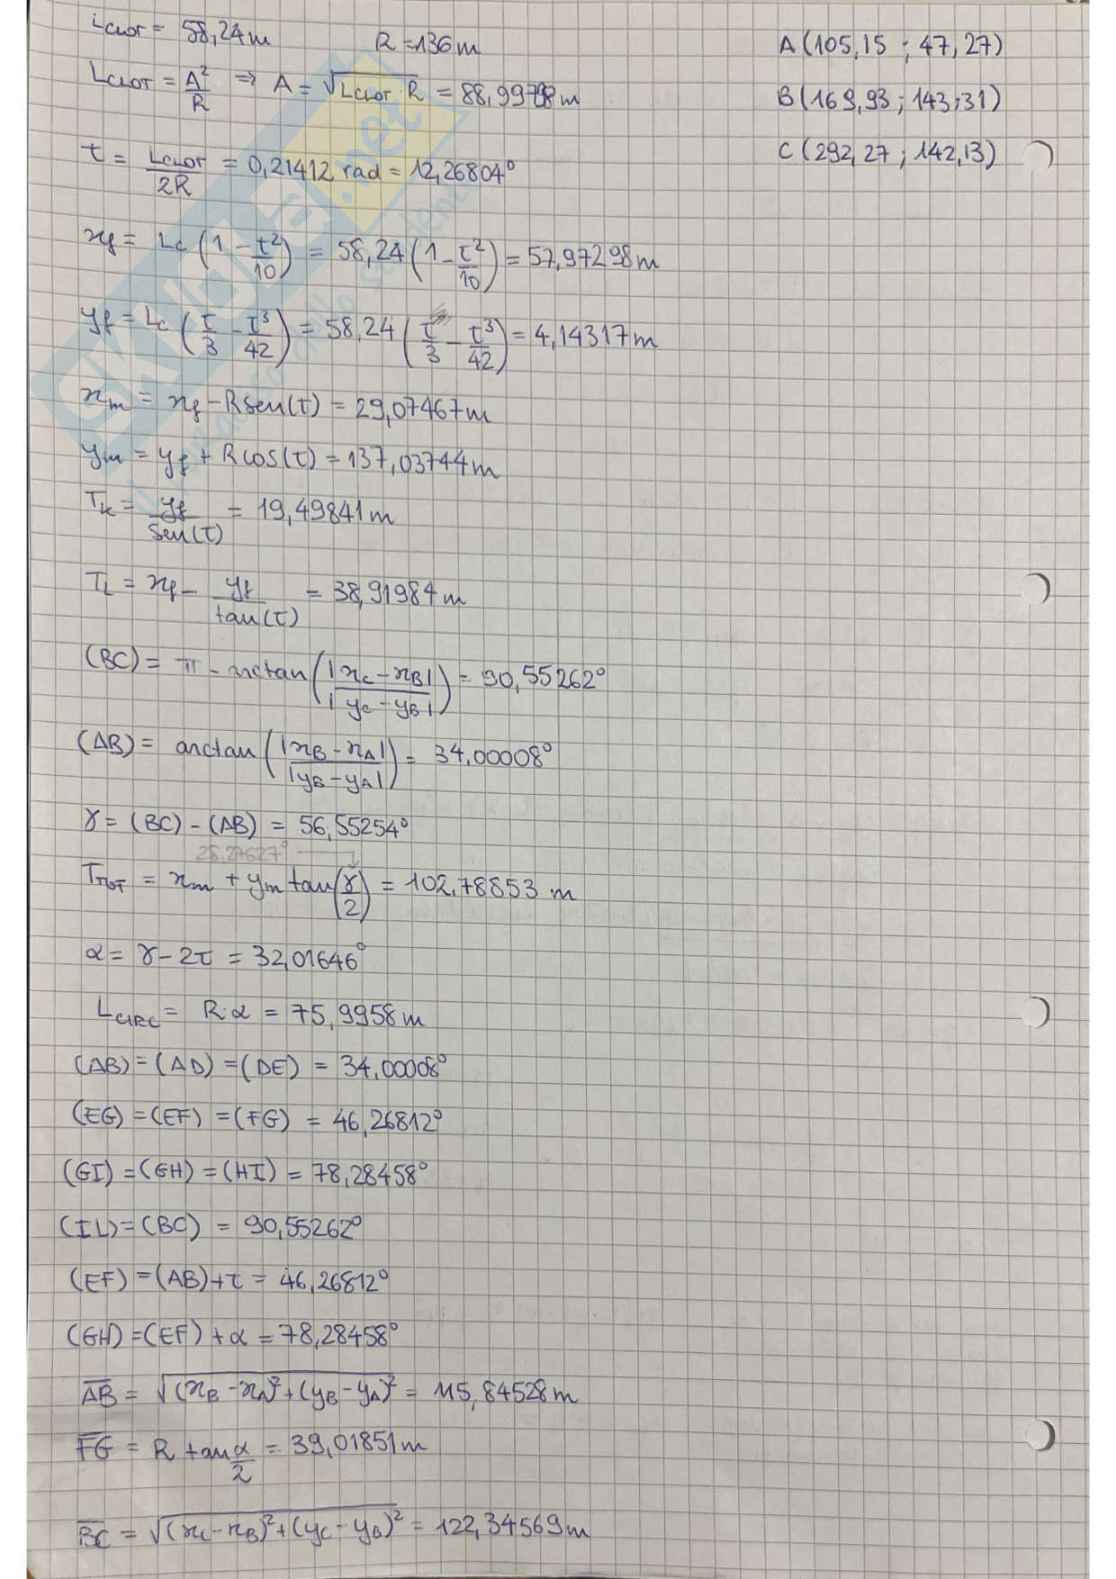 LCLOT = 58,24m R = 136m A(105,15 ; 47,27)
LCLOT = A²/R => A = √(LCLOT R) = 88,99798m B(169,93 ; 143,31)
τ = LCLOT/2R = 0,21412 rad = 12,26804° C(292,27 ; 142,13)
xf = Lc (1 - τ²/10) = 58,24 (1 - τ²/10) = 57,97298m
yf = Lc (τ/3 - τ³/42) = 58,24 (τ/3 - τ³/42) = 4,14317m
xm = xf - Rsen(τ) = 29,07467m
ym = yf + Rcos(τ) = 137,03744m
Tk = yf/sen(τ) = 19,49841m
TL = xf - yf/tan(τ) = 38,91984m
(BC) = π - arctan(|xc - xB|/|yc - yB|) = 90,55262°
(AB) = arctan(|xB - xA|/|yB - yA|) = 34,00008°
γ = (BC) - (AB) = 56,55254°
28,27627°
TTOT = xm + ym tan(γ/2) = 102,78853 m
α = γ - 2τ = 32,01646°
LCIRC = R·α = 75,9958m
(AB) = (AD) = (DE) = 34,00008°
(EG) = (EF) = (FG) = 46,26812°
(GI) = (GH) = (HI) = 78,28458°
(IL) = (BC) = 90,55262°
(EF) = (AB) + τ = 46,26812°
(GH) = (EF) + α = 78,28458°
AB = √((xB - xA)² + (yB - yA)²) = 115,84528m
FG = R tan α/2 = 39,01851m
BC = √((xc - xB)² + (yc - yB)²) = 122,34569m